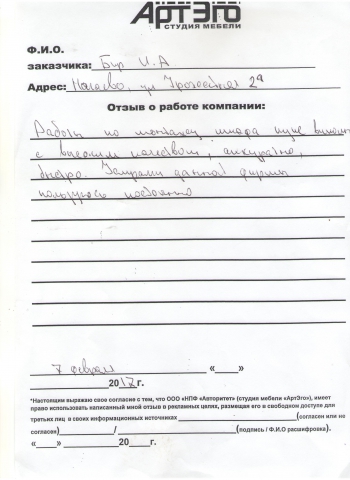 АртЭго
СТУДИЯ МЕБЕЛИ
Ф.И.О.
заказчика: Бир И.А
Адрес: ул 2а
Отзыв о работе компании:
Работы по монтажу шкафа купе
с высоким качеством, аккуратно,
быстро. данной фирмы
пользуюсь постоянно
7 февраля « »
2017г.
*Настоящим выражаю свое согласие с тем, что ООО «НПФ «Авторитет» (студия мебели «АртЭго»), имеет
право использовать написанный мной отзыв в рекламных целях, размещая его в свободном доступе для
третьих лиц в своих информационных источниках (согласен или не
согласен) / (подпись / Ф.И.О расшифровка).
« » 20 г.